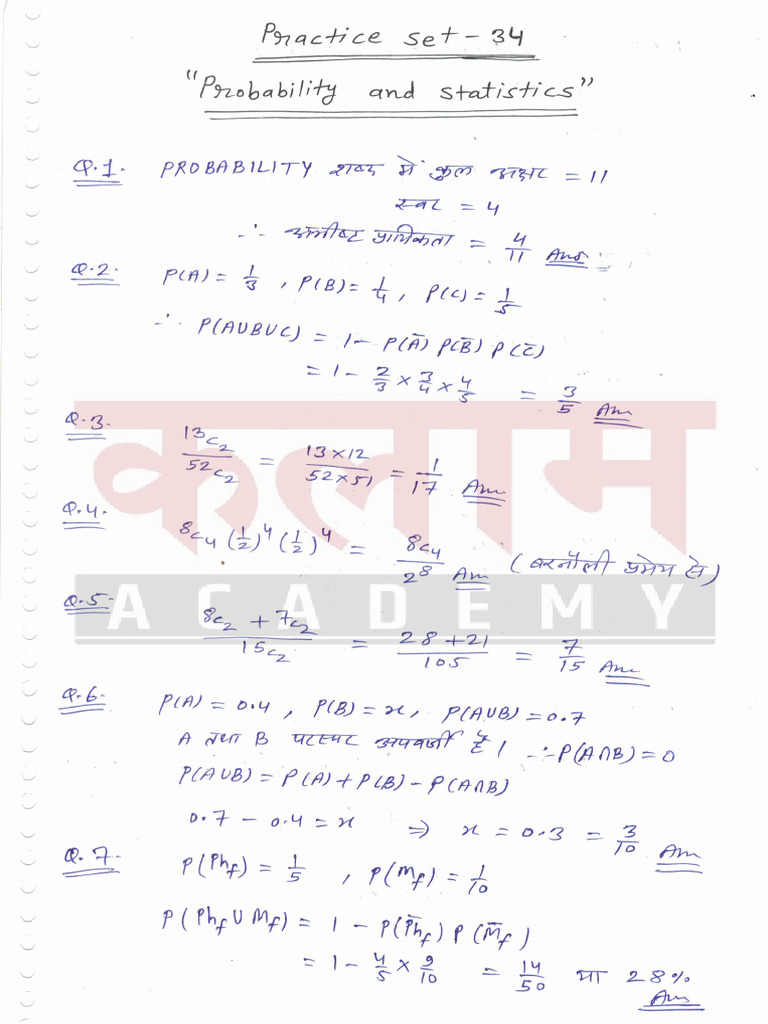 Practice set - 34
"Probability and statistics"
Q.1. PROBABILITY शब्द में कुल अक्षर = 11
स्वर = 4
∴ अभीष्ट प्रायिकता = 4/11 Ans
Q.2. P(A) = 1/3 , P(B) = 1/4 , P(C) = 1/5
∴ P(AUBUC) = 1 - P(Ā) P(B̄) P(C̄)
= 1 - 2/3 × 3/4 × 4/5 = 3/5 Ans
Q.3. 13C2/52C2 = 13×12/52×51 = 1/17 Ans
कलाम
Q.4. 8C4 (1/2)^4 (1/2)^4 = 8C4/2^8 Ans (बरनौली प्रमेय से)
ACADEMY
Q.5. 8C2 + 7C2/15C2 = 28+21/105 = 7/15 Ans
Q.6. P(A) = 0.4 , P(B) = x, P(AUB) = 0.7
A तथा B परस्पर अपवर्जी हैं। ∴ P(A∩B) = 0
P(AUB) = P(A) + P(B) - P(A∩B)
0.7 - 0.4 = x ⇒ x = 0.3 = 3/10 Ans
Q.7. P(Phf) = 1/5 , P(Mf) = 1/10
P(Phf U Mf) = 1 - P(P̄hf) P(M̄f)
= 1 - 4/5 × 9/10 = 14/50 या 28% Ans